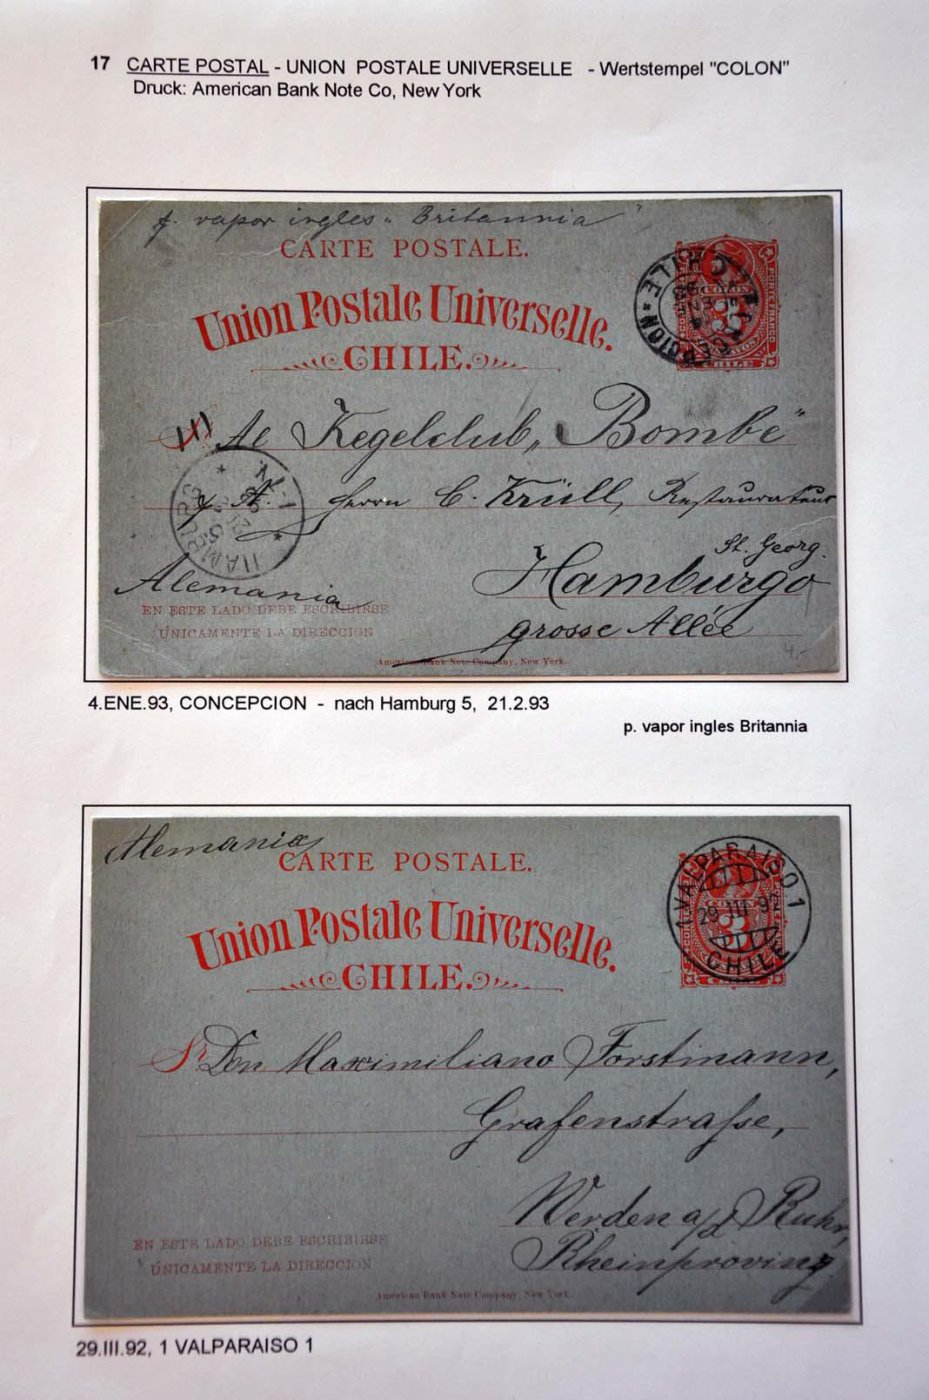 17 CARTE POSTAL - UNION POSTALE UNIVERSELLE - Wertstempel "COLON"
Druck: American Bank Note Co, New York
p. vapor ingles „Britannia"
CARTE POSTALE.
Union Postale Universelle.
CHILE.
CHILE
Kegelclub „Bombe"
Herrn C. Krüll, Restaurateur
St. Georg.
Hamburgo
Alemania
grosse Allée
EN ESTE LADO DEBE ESCRIBIRSE
ÚNICAMENTE LA DIRECCION
American Bank Note Company, New York.
HAMBURG
4.ENE.93, CONCEPCION - nach Hamburg 5, 21.2.93
p. vapor ingles Britannia
Alemania
CARTE POSTALE.
Union Postale Universelle.
CHILE.
1 VALPARAISO 1
29 III 92
CHILE
Sr Don Maximiliano Forstmann,
Grafenstraſse,
Werden a/d Ruhr,
Rheinprovinz
EN ESTE LADO DEBE ESCRIBIRSE
ÚNICAMENTE LA DIRECCION
American Bank Note Company, New York.
29.III.92, 1 VALPARAISO 1